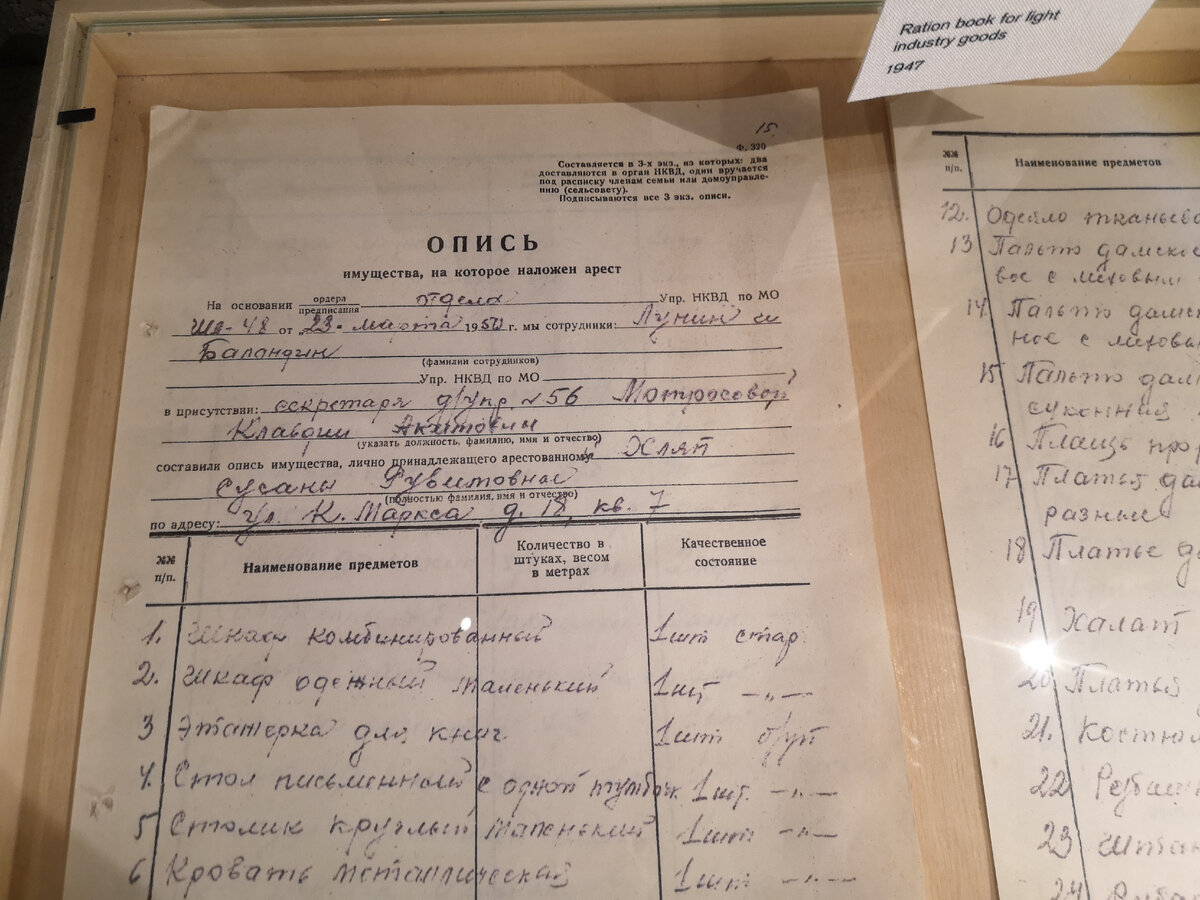 Ration book for light
industry goods
1947
15.
Ф. 320
Составляется в 3-х экз., из которых: два
доставляются в орган НКВД, один вручается
под расписку членам семьи или домоуправле-
нию (сельсовету).
Подписываются все 3 экз. описи.
ОПИСЬ
имущества, на которое наложен арест
На основании ордера предписания отдела Упр. НКВД по МО
от 23 марта 195 г. мы сотрудники: Лунин и
Баландин
(фамилии сотрудников)
Упр. НКВД по МО
в присутствии: секретаря д/упр. № 56 Матросовой
Клавдии
(указать должность, фамилию, имя и отчество)
составили опись имущества, лично принадлежащего арестованному Хляп
Сусаны Рувимовны
(полностью фамилия, имя и отчество)
по адресу: ул. К. Маркса д. 18, кв. 7
№№ п/п.
Наименование предметов
Количество в штуках, весом в метрах
Качественное состояние
1. Шкаф комбинированный 1шт стар
2. Шкаф одежный маленький 1шт —„—
3 Этажерка для книг 1шт б/уп
4. Стол письменный с одной тумбочк 1шт. —„—
5 Столик круглый маленький 1шт —„—
6 Кровать металлическая 1шт —„—
№№ п/п.
Наименование предметов
12. Одеяло тканьево
13 Пальто дамское
вое с меховым
14. Пальто дамск
ное с мехова
15 Пальто дам
суконная
16 Плащь про
17 Платья да
разные
18 Платье д
19 Халат
20 Платья
21. Костюм
22
23 Штан
24